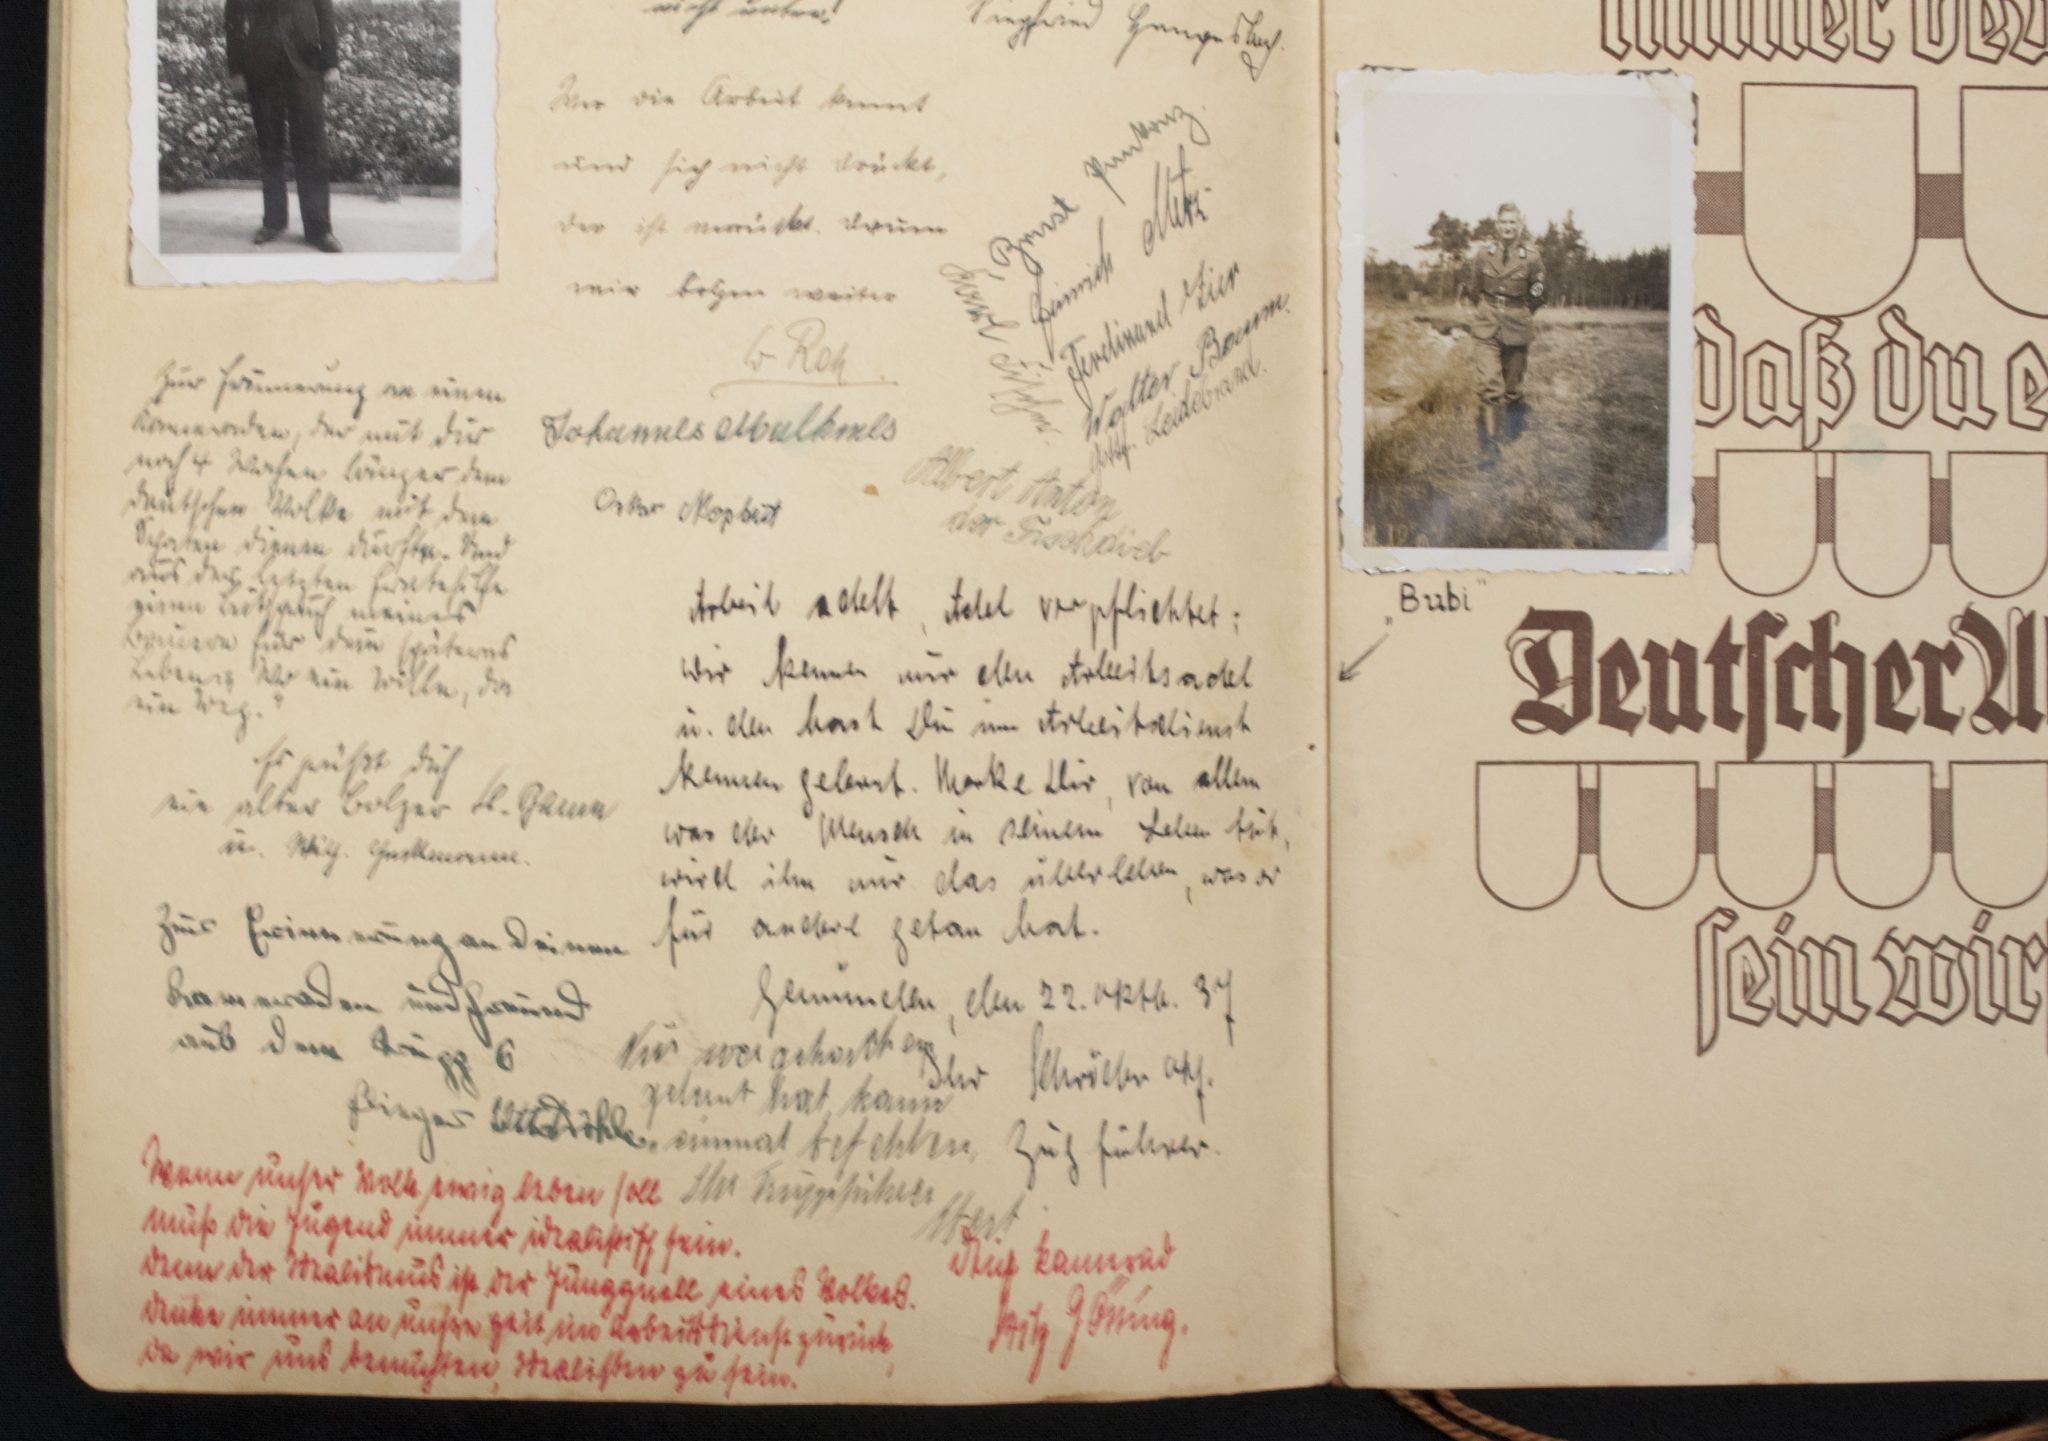 nicht unter!
Siegfried
Wer die Arbeit kennt
und sich nicht drückt,
der ist verrückt. Drum
wir bolzen weiter
Roh
Johannes Malkmes
Ernst
Heinrich Metz
Ferdinand Zier
Walter Baum.
Leidebrand.
Albert Anton
der Fischdieb
Zur Erinnerung an einen
Kameraden, der mit dir
noch 4 Wochen länger dem
deutschen Volke mit dem
Spaten dienen durfte. Und
aus der letzten Erntehilfe
einen Leitspruch meines
Bauern für dein späteres
Leben: Wo ein Wille, da
ein Weg."
Es grüßt dich
ein alter Bolzer
u. Wilh.
Arbeit adelt, Adel verpflichtet;
wir kennen nur den Arbeitsadel
u. den hast Du im Arbeitsdienst
kennen gelernt. Merke Dir, von allem
was der Mensch in seinem Leben tut,
wird ihn nur das überleben, was er
für andere getan hat.
Gemünden, den 22. Oktb. 37
Ihr
Zugführer.
Zur Erinnerung an Deinen
Kameraden und Freund
aus dem Trupp 6
Nur wer gehorchen
gelernt hat, kann
einmal befehlen.
Ihr Truppführer
Wenn unser Volk ewig leben soll
muß die Jugend immer idealistisch sein.
Denn der Idealismus ist der Jungquell eines Volkes.
Denke immer an unsere Zeit im Arbeitsdienst zurück,
da wir uns bemühten, Idealisten zu sein.
Dein Kamerad
Fritz Götting.
immer
daß du
„Bubi"
Deutscher
sein wir